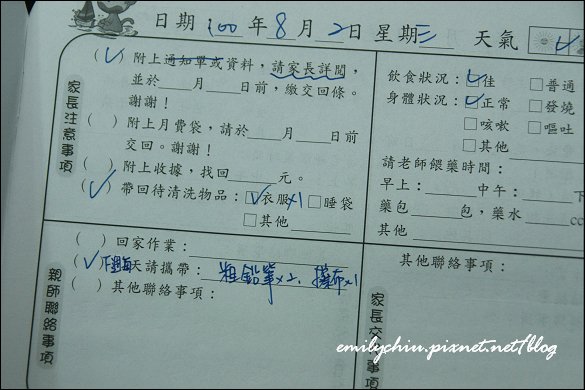 日期 100 年 8 月 2 日 星期 三 天氣
家長注意事項
(✓) 附上通知單或資料,請家長詳閱,
並於____月____日前,繳交回條。
謝謝!
( ) 附上月費袋,請於____月____日前
交回。謝謝!
( ) 附上收據,找回____元。
(✓) 帶回待清洗物品:☑衣服x1 □睡袋
□其他
親師聯絡事項
( ) 回家作業:
(✓) 天請攜帶: 粗鉛筆x2、抹布x1
( ) 其他聯絡事項:
飲食狀況:☑佳 □普通
身體狀況:☑正常 □發燒
□咳嗽 □嘔吐
□其他
請老師餵藥時間:
早上:____中午:____下
藥包____包,藥水____cc
其他聯絡事項:
家長交
emilychiu.pixnet.net/blog